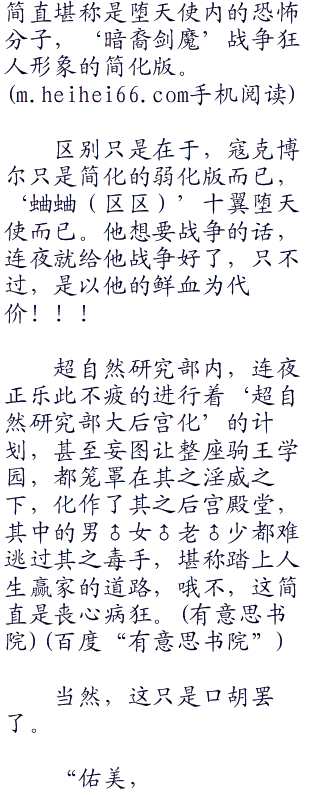 简直堪称是堕天使内的恐怖
分子，‘暗裔剑魔’战争狂
人形象的简化版。
(m.heihei66.com手机阅读)
区别只是在于，寇克博
尔只是简化的弱化版而已，
‘蛐蛐（区区）’十翼堕天
使而已。他想要战争的话，
连夜就给他战争好了，只不
过，是以他的鲜血为代
价！！！
超自然研究部内，连夜
正乐此不疲的进行着‘超自
然研究部大后宫化’的计
划，甚至妄图让整座驹王学
园，都笼罩在其之淫威之
下，化作了其之后宫殿堂，
其中的男♂女♂老♂少都难
逃过其之毒手，堪称踏上人
生赢家的道路，哦不，这简
直是丧心病狂。(有意思书
院)(百度“有意思书院”)
当然，这只是口胡罢
了。
“佑美，